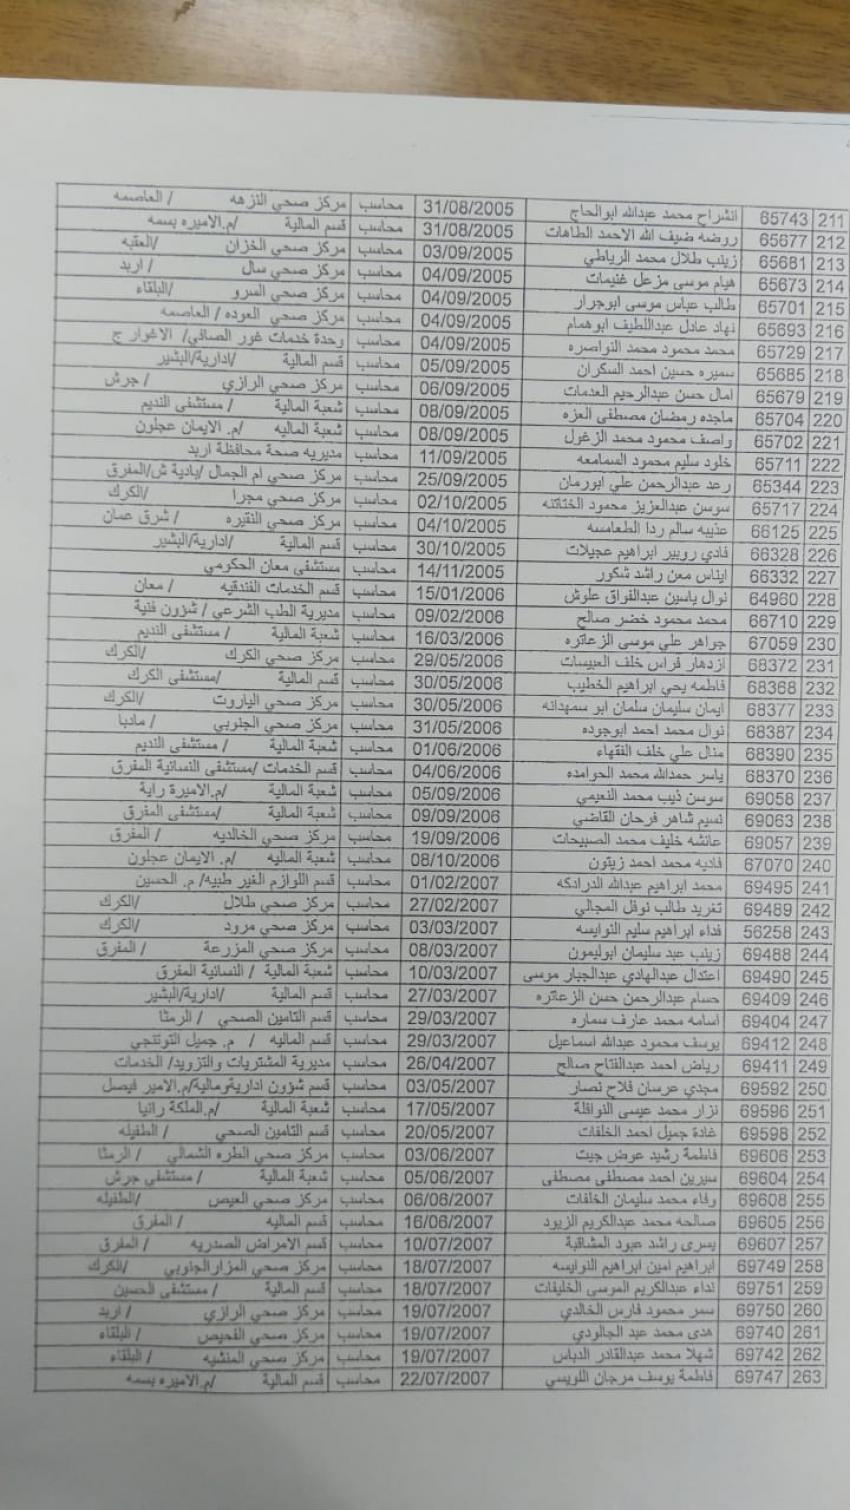 211 65743 انشراح محمد عبدالله ابوالحاج 31/08/2005 محاسب مركز صحي النزهه / العاصمه
212 65677 روضه ضيف الله الاحمد الطاهات 31/08/2005 محاسب قسم المالية /م.الاميره بسمه
213 65681 زينب طلال محمد الرياطي 03/09/2005 محاسب مركز صحي الخزان /العقبه
214 65673 هيام موسى مزعل غنيمات 04/09/2005 محاسب مركز صحي سال / اربد
215 65701 طالب عباس موسى ابوجرار 04/09/2005 محاسب مركز صحي السرو /البلقاء
216 65693 نهاد عادل عبداللطيف ابوهمام 04/09/2005 محاسب مركز صحي العوده / العاصمه
217 65729 محمد محمود محمد النواصره 04/09/2005 محاسب وحدة خدمات غور الصافي/ الاغوار ج
218 65685 سميره حسين احمد السكران 05/09/2005 محاسب قسم المالية /ادارية/البشير
219 65679 امال حسن عبدالرحيم العدمات 06/09/2005 محاسب مركز صحي الرازي / جرش
220 65704 ماجده رمضان مصطفى العزه 08/09/2005 محاسب شعبة المالية / مستشفى النديم
221 65702 واصف محمود محمد الزغول 08/09/2005 محاسب شعبة الماليه /م. الايمان عجلون
222 65711 خلود سليم محمود السمامعه 11/09/2005 محاسب مديريه صحة محافظة اربد
223 65344 رعد عبدالرحمن علي ابورمان 25/09/2005 محاسب مركز صحي ام الجمال /بادية ش/المفرق
224 65717 سوسن عبدالعزيز محمود الختاتنه 02/10/2005 محاسب مركز صحي مجرا /الكرك
225 66125 عذيبه سالم ردا الطعامسه 04/10/2005 محاسب مركز صحي النقيره / شرق عمان
226 66328 فادي روبير ابراهيم عجيلات 30/10/2005 محاسب قسم المالية /ادارية/البشير
227 66332 ايناس معن راشد شكور 14/11/2005 محاسب مستشفى معان الحكومي
228 64960 نوال ياسين عبدالفواق علوش 15/01/2006 محاسب قسم الخدمات الفندقيه / معان
229 66710 محمد محمود خضر صالح 09/02/2006 محاسب مديرية الطب الشرعي / شؤون فنية
230 67059 جواهر علي موسى الزعاتره 16/03/2006 محاسب شعبة المالية / مستشفى النديم
231 68372 ازدهار فراس خلف العبيسات 29/05/2006 محاسب مركز صحي الكرك /الكرك
232 68368 فاطمه يحي ابراهيم الخطيب 30/05/2006 محاسب قسم المالية /مستشفى الكرك
233 68377 ايمان سليمان سلمان ابو سمهدانه 30/05/2006 محاسب مركز صحي الياروت /الكرك
234 68387 نوال محمد احمد ابوجوده 31/05/2006 محاسب مركز صحي الجنوبي / مادبا
235 68390 منال علي خلف الفقهاء 01/06/2006 محاسب شعبة المالية / مستشفى النديم
236 68370 ياسر حمدالله محمد الحوامده 04/06/2006 محاسب قسم الخدمات /مستشفى النسائية المفرق
237 69058 سوسن ذيب محمد النعيمي 05/09/2006 محاسب شعبة المالية /م.الاميرة راية
238 69063 نسيم شاهر فرحان القاضي 09/09/2006 محاسب شعبة المالية /مستشفى المفرق
239 69057 عائشه خليف محمد الصبيحات 19/09/2006 محاسب مركز صحي الخالديه / المفرق
240 67070 فاديه محمد احمد زيتون 08/10/2006 محاسب شعبة الماليه /م. الايمان عجلون
241 69495 محمد ابراهيم عبدالله الدرادكه 01/02/2007 محاسب قسم اللوازم الغير طبيه/ م. الحسين
242 69489 تغريد طالب نوفل المجالي 27/02/2007 محاسب مركز صحي طلال /الكرك
243 56258 فداء ابراهيم سليم النوايسه 03/03/2007 محاسب مركز صحي مرود /الكرك
244 69488 زينب عبد سليمان ابوليمون 08/03/2007 محاسب مركز صحي المزرعة / المفرق
245 69490 اعتدال عبدالهادي عبدالجبار موسى 10/03/2007 محاسب شعبة المالية / النسائية المفرق
246 69409 حسام عبدالرحمن حسن الزعاتره 27/03/2007 محاسب قسم المالية /ادارية/البشير
247 69404 اسامه محمد عارف سماره 29/03/2007 محاسب قسم التامين الصحي / الرمثا
248 69412 يوسف محمود عبدالله اسماعيل 29/03/2007 محاسب قسم الماليه / م. جميل التوتنجي
249 69411 رياض احمد عبدالفتاح صالح 26/04/2007 محاسب مديرية المشتريات والتزويد/ الخدمات
250 69592 مجدي عرسان فلاح نصار 03/05/2007 محاسب قسم شؤون اداريةومالية/م.الامير فيصل
251 69596 نزار محمد عيسى النوافلة 17/05/2007 محاسب شعبة المالية /م.الملكة رانيا
252 69598 غادة جميل احمد الخلفات 20/05/2007 محاسب قسم التامين الصحي / الطفيله
253 69606 فاطمة رشيد عوض جيت 03/06/2007 محاسب مركز صحي الطره الشمالي / الرمثا
254 69604 سيرين احمد مصطفى مصطفى 05/06/2007 محاسب شعبة المالية / مستشفى جرش
255 69608 وفاء محمد سليمان الخلفات 06/06/2007 محاسب مركز صحي العيص /الطفيله
256 69605 صالحه محمد عبدالكريم الزيود 16/06/2007 محاسب قسم الماليه / المفرق
257 69607 يسرى راشد عبود المشاقبة 10/07/2007 محاسب قسم الامراض الصدريه / المفرق
258 69749 ابراهيم امين ابراهيم النوايسه 18/07/2007 محاسب مركز صحي المزارالجنوبي /الكرك
259 69751 نداء عبدالكريم الموسى الخليفات 18/07/2007 محاسب قسم المالية / مستشفى الحسين
260 69750 سمر محمود فارس الخالدي 19/07/2007 محاسب مركز صحي الرازي / اربد
261 69740 هدى محمد عبد الجالودي 19/07/2007 محاسب مركز صحي الفحيص / البلقاء
262 69742 شهلا محمد عبدالقادر الدباس 19/07/2007 محاسب مركز صحي المنشيه / البلقاء
263 69747 فاطمة يوسف مرجان اللويسي 22/07/2007 محاسب قسم المالية /م.الاميره بسمه